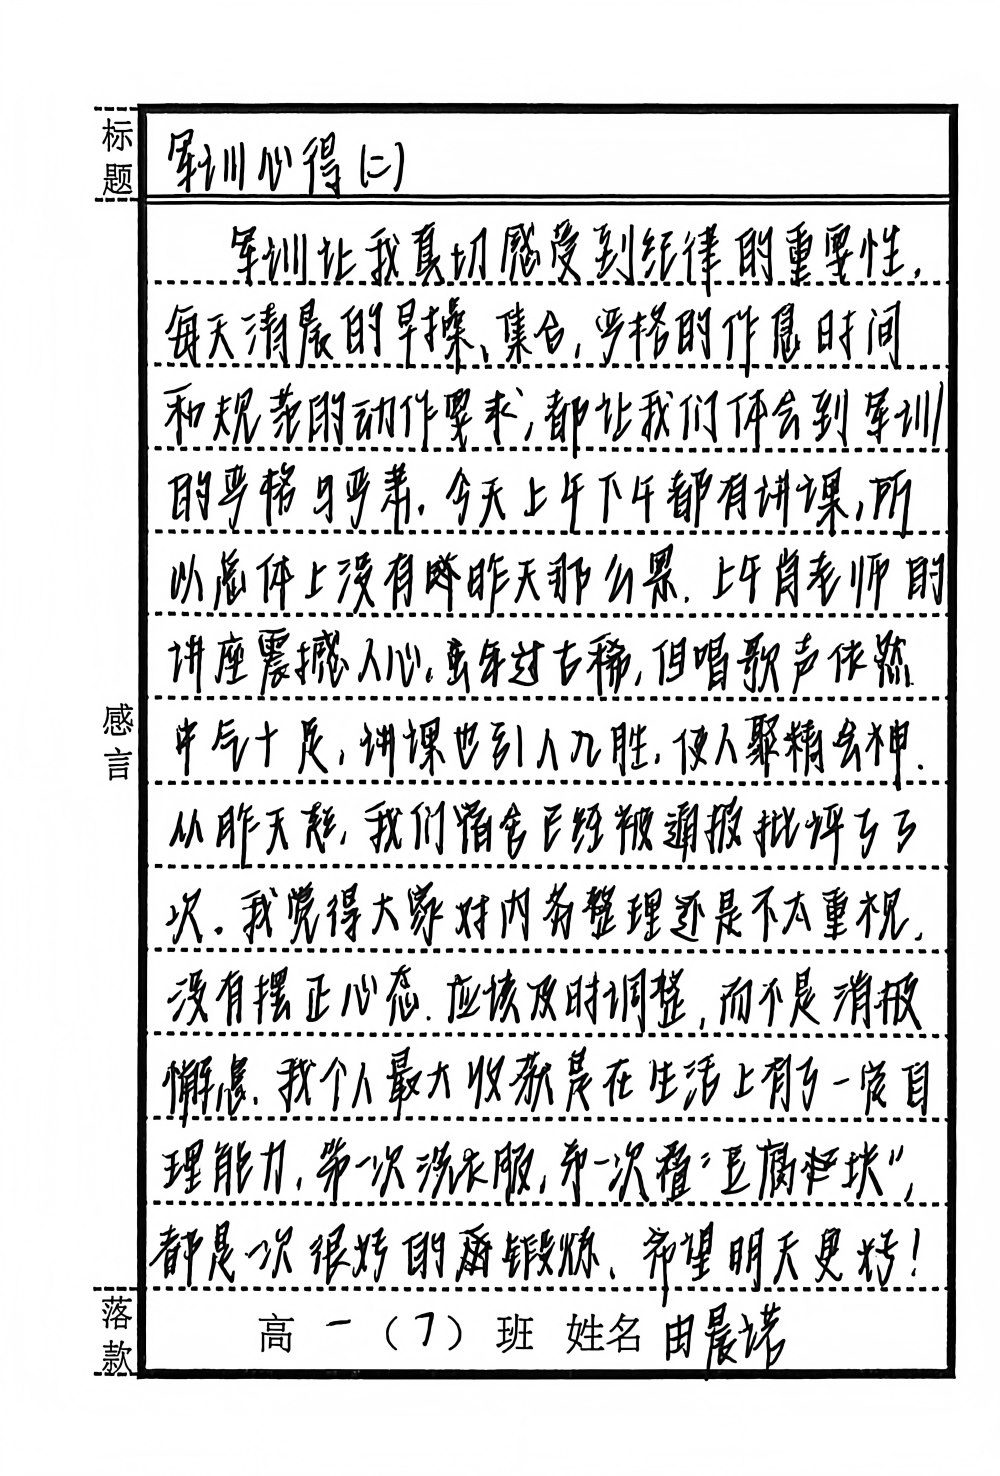 标题
军训心得(二)
军训让我真切感受到纪律的重要性,
每天清晨的早操、集合,严格的作息时间
和规范的动作要求,都让我们体会到军训
的严格与严肃。今天上午下午都有讲课,所
以总体上没有昨天那么累.上午肖老师的
讲座震撼人心。虽年过古稀,但唱歌声依然
中气十足,讲课也引人入胜,使人聚精会神.
从昨天起,我们宿舍已经被通报批评了3
次。我觉得大家对内务整理还是不太重视,
没有摆正心态.应该及时调整,而不是消极
懈怠.我个人最大收获是在生活上有了一定自
理能力,第一次洗衣服,第一次叠“豆腐块”,
都是一次很好的锻炼、希望明天更好!
感言
落款
高一(7)班 姓名 田晨诺